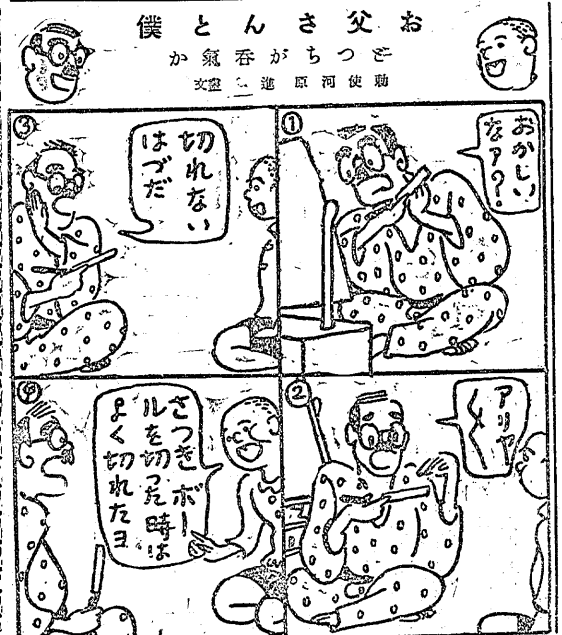 お父さんと僕
どつちが呑氣か
勅使河原 進
①
おかしい
なア?
②
アリヤ
③
切れない
はづだ
④
さつきボー
ルを切つた時は
よく切れたヨ